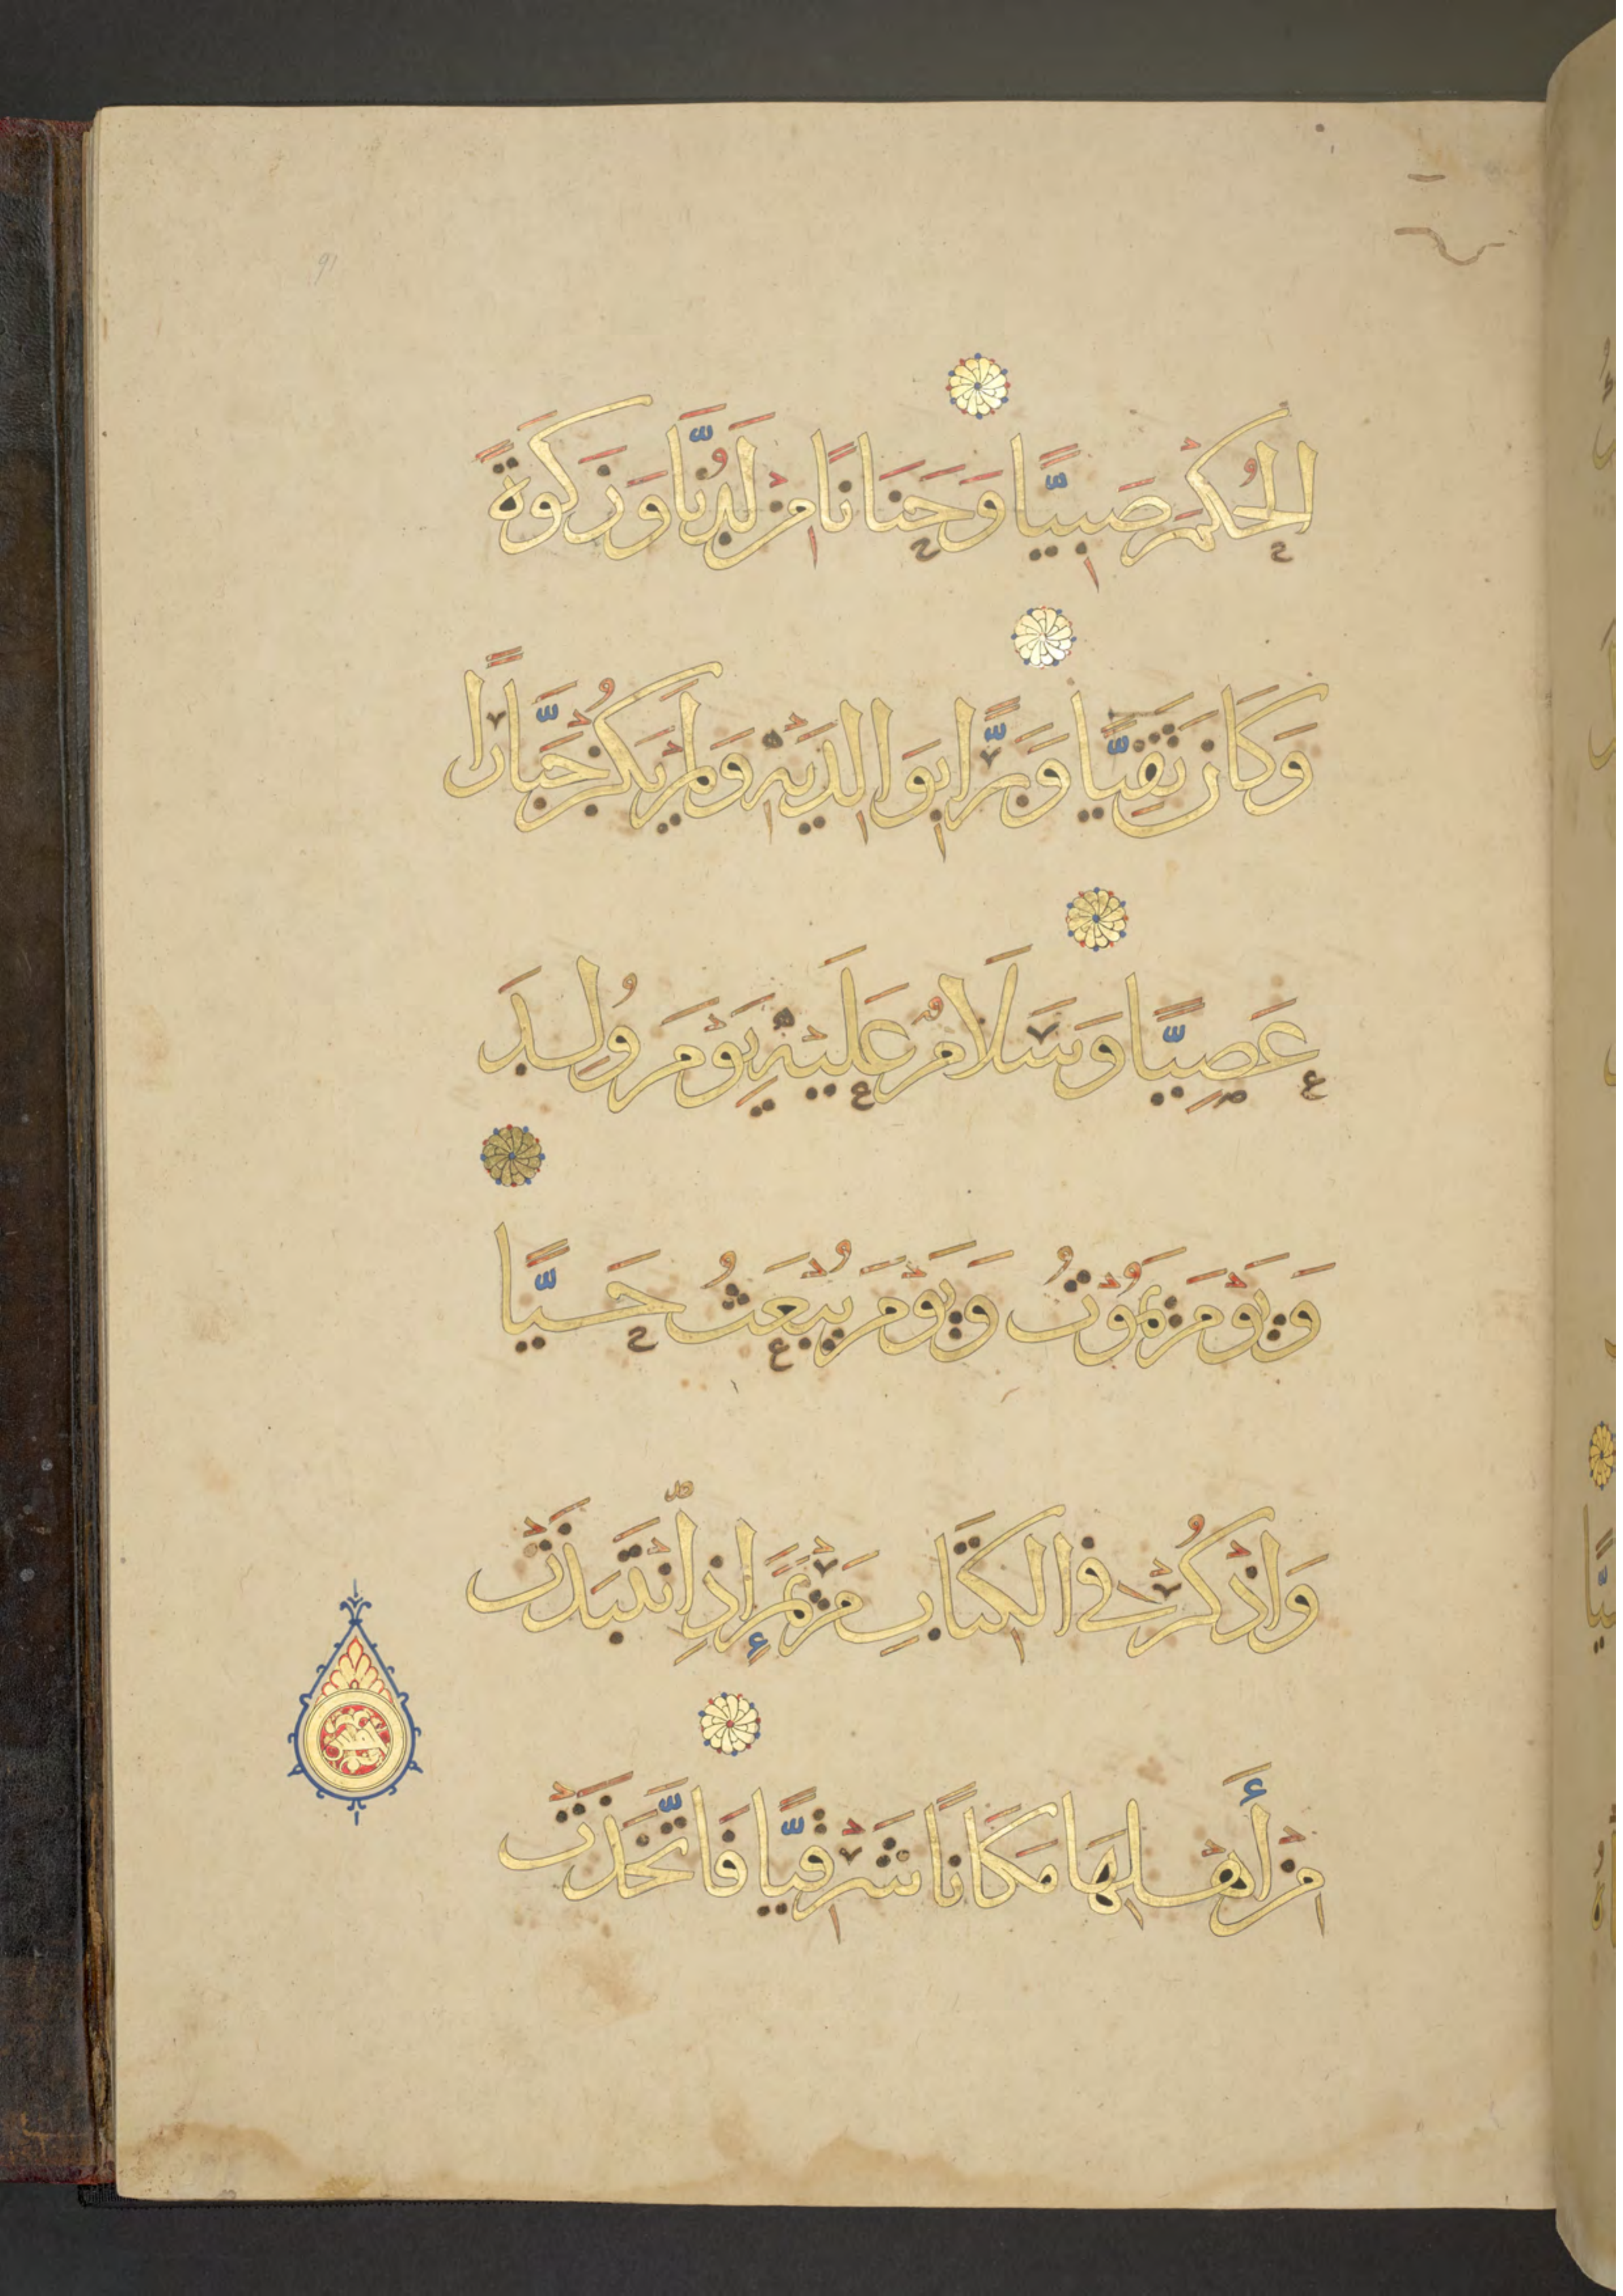 الْحُكْمَ صَبِيًّا وَحَنَانًا مِنْ لَدُنَّا وَزَكَوٰةً
وَكَانَ تَقِيًّا وَبَرًّا بِوَالِدَيْهِ وَلَمْ يَكُنْ جَبَّارًا
عَصِيًّا وَسَلَامٌ عَلَيْهِ يَوْمَ وُلِدَ
وَيَوْمَ يَمُوتُ وَيَوْمَ يُبْعَثُ حَيًّا
وَاذْكُرْ فِي الْكِتَابِ مَرْيَمَ إِذِ انْتَبَذَتْ
مِنْ أَهْلِهَا مَكَانًا شَرْقِيًّا فَاتَّخَذَتْ
91